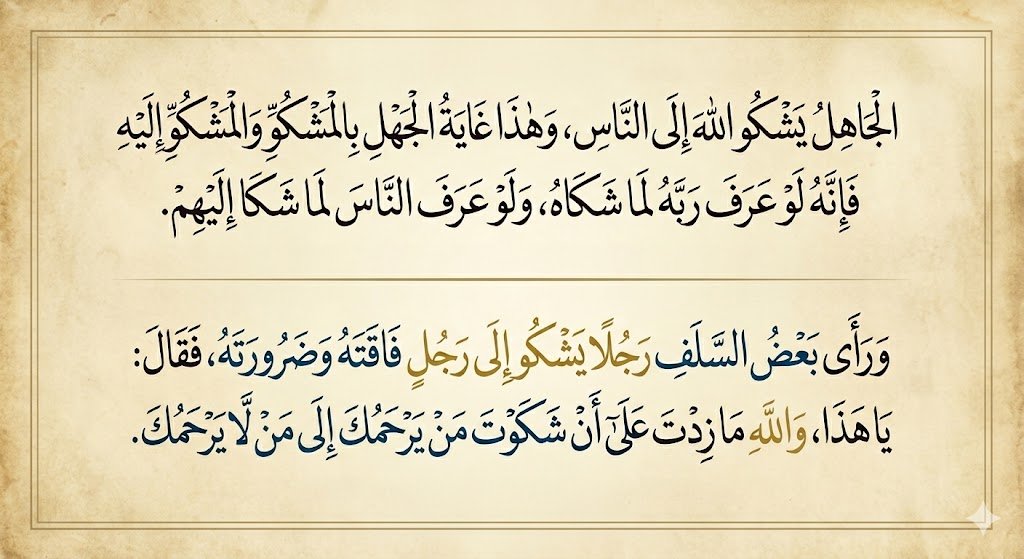 الْجَاهِلُ يَشْكُو اللهَ إِلَى النَّاسِ، وَهٰذَا غَايَةُ الْجَهْلِ بِالْمَشْكُوِّ وَالْمَشْكُوِّ إِلَيْهِ
فَإِنَّهُ لَوْ عَرَفَ رَبَّهُ لَمَا شَكَاهُ، وَلَوْ عَرَفَ النَّاسَ لَمَا شَكَا إِلَيْهِمْ.
وَرَأَى بَعْضُ السَّلَفِ رَجُلًا يَشْكُو إِلَى رَجُلٍ فَاقَتَهُ وَضَرُورَتَهُ، فَقَالَ:
يَا هَذَا، وَاللَّهِ مَا زِدْتَ عَلَىٰٓ أَنْ شَكَوْتَ مَنْ يَرْحَمُكَ إِلَى مَنْ لَّا يَرْحَمُكَ.